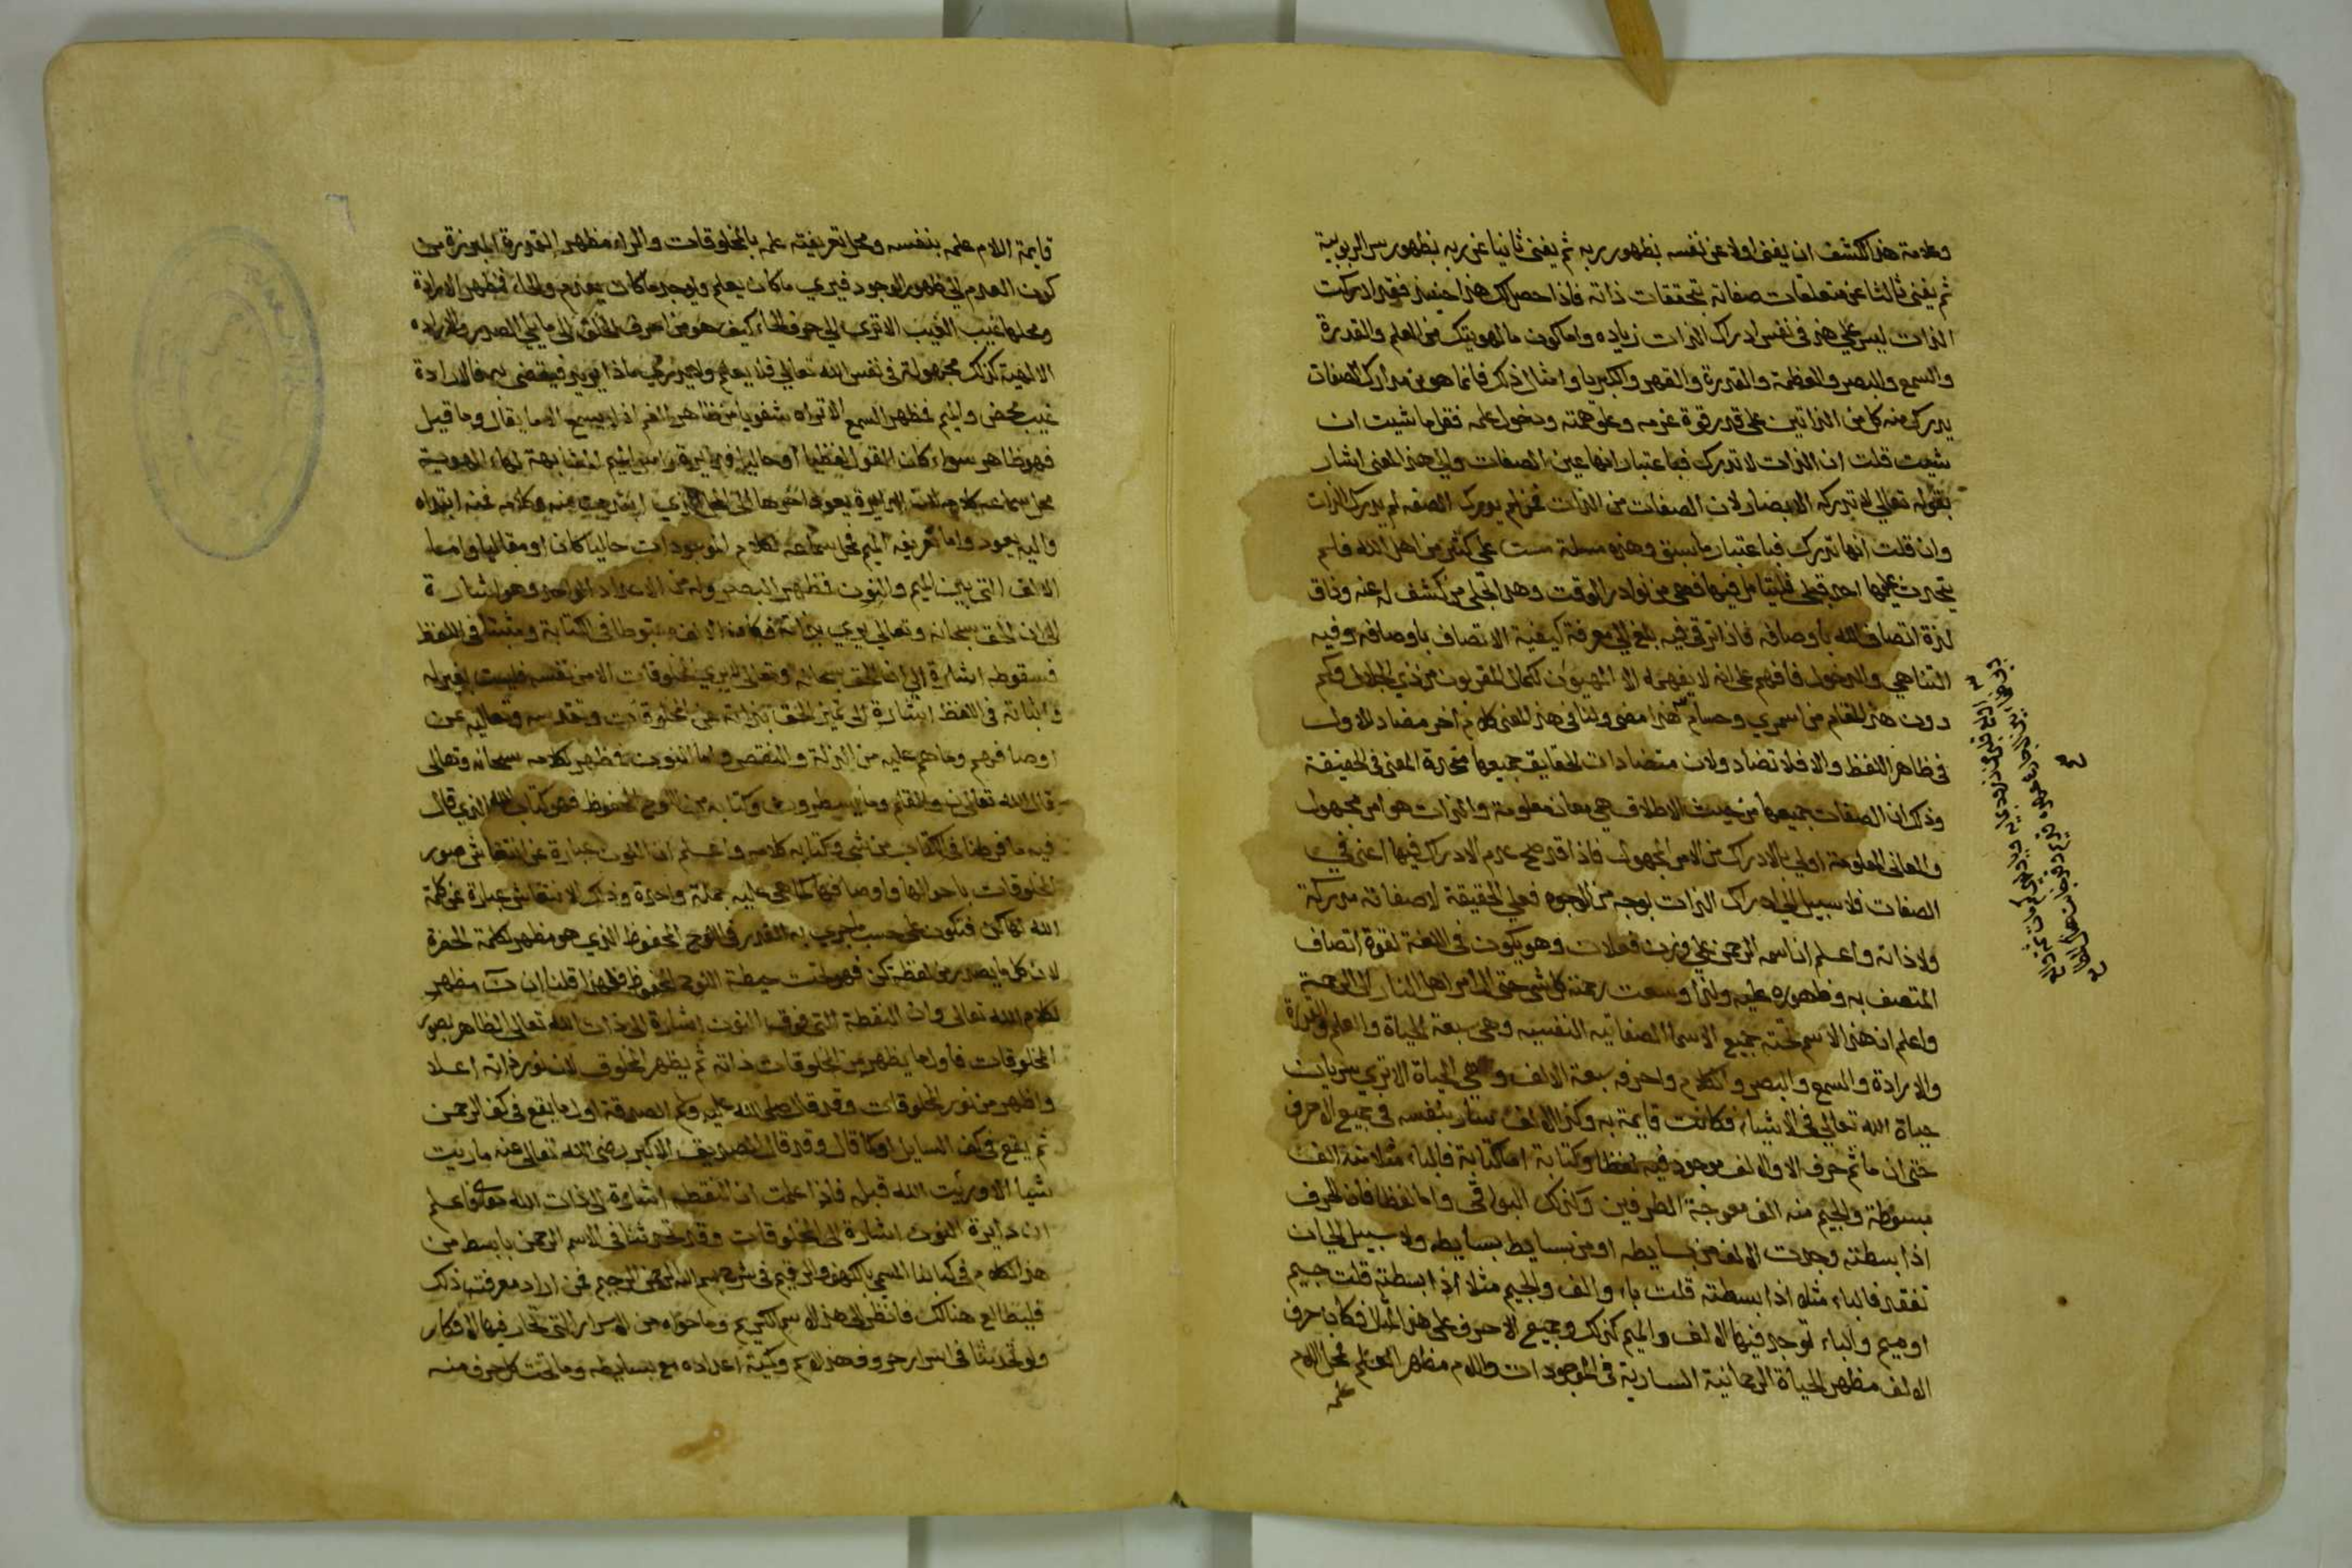 وعلامة هذا الكشف ان يفنى اولا عن نفسه بظهور ربه ثم يفنى ثانيا عن ربه بظهور سر الربوبية
ثم يفنى ثالثا عن متعلقات صفاته بتحققات ذاته فاذا حصل لك هذا حينئذ فقد ادركت
الذات ليس على هذا في نفس ادراك الذات زياده واما كون ما لهويتك من العلم والقدرة
والسمع والبصر والعظمة والقدرة والقهر والكبريا وامثال ذلك فانما هو من مدارك الصفات
يدرك منه كل من الذاتين على قدر قوة عزمه وعلو همته ودخول علمه فقل ما شيت ان
شيت قلت ان الذات لا تدرك فباعتبار انها عين الصفات والى هذا المعنى اشار
بقوله تعالى لا تدركه الابصار لان الابصار من الصفات فمن لم يدرك الصفه لم يدرك الذات
وان قلت انها تدرك فباعتبار ما سبق وهذه مسلة خفيت على كثير من اهل الله فلم
يتحدث عليها احد قبلي فليتامل فيها فهي من نوادر الوقت وهذا تجلى من كشف له عنه وذاق
لذة اتصاف الله باوصافه فاذا ترقى فيه بلغ الى معرفة كيفية الاتصاف باوصافه وفيه
التناهي والدخول فافهم على انه لا يفهمه الا المتهيون لكمال المقربون من ذي الجلال وكم
دون هذا المقام من اسمر وحسام هذا مضى ولنا في هذا المعنى كلام اخر مضاد للاول
في ظاهر اللفظ والا فلا تضاد ولان متضادات الحقايق جميعها متحدة المعنى في الحقيقة
وذلك ان الصفات جميعها من حيث الاطلاق هي معان معلومة والذات هو امر مجهول
والمعاني المعلومة اولى بالادراك من الامر المجهول فاذا قد صح عدم الادراك فيها اعني في
الصفات فلا سبيل الى ادراك الذات بوجه من الوجوه فعلى الحقيقة لا صفاته مدركة
ولا ذاته واعلم ان اسمه الرحمن على وزن فعلان وهو يكون في اللغة لقوة اتصاف
المتصف به وظهوره عليه ولذا وسعت رحمته كل شي حتى ال امر اهل النار الى الرحمة
واعلم ان هذا الاسم تحته جميع الاسما الصفاتيه النفسيه وهي سبعة الحياة والعلم والقدرة
والارادة والسمع والبصر والكلام واحرفه سبعة الالف وهي الحياة الا ترى سريان
حياة الله تعالى في الاشياء فكانت قايمة به وكذا الالف سار بنفسه في جميع الاحرف
حتى ان ما ثم حرف الا والالف موجود فيه لفظا وكتابة اما كتابة فالباء مثلا منه الف
مبسوطة والجيم منه الف معوجة الطرفين وكذلك البواقي واما لفظا فان الحرف
اذا بسطته وجدت الالف من بسايطه او من بسايط بسايطه ولا سبيل الى ان
تفقد فالباء مثلا اذا بسطته قلت باء والف والجيم مثلا اذا بسطته قلت جيم
او ميم والياء توجد فيها الالف والميم كذلك وجميع الاحرف على هذا المثال فكان حرف
الالف مظهر الحياة الرحمانية السارية في الموجودات واللام مظهر العلم فمحل اللام
علمه
قايمة اللام علمه بنفسه ومحل تعريفته علمه بالمخلوقات والراء مظهر القدرة المبرزة من
كون العدم الى ظهور الوجود فيرى ما كان يعلم ويوجد ما كان يعدم والحاء مظهر الارادة
ومحلها غيب الغيب الا ترى الى حرف الحاء كيف هو من احرف الحلق الى ما يلي الصدر والاراده
الالهية كذلك مجهولة في نفس الله تعالى فلا يعلم ولا يدرى ماذا يريد فيقضي به فالارادة
غيب محض والميم مظهر السمع الا تراه شفويا من ظاهر الفم اذ لا يسمع الا ما يقال وما قيل
فهو ظاهر سواء كان القول لفظيا او حاليا فدايرة راس الميم لمشابهة لهاء الهوية
محل سماعه كلامه لان الدايرة يعود اخرها الى المحل الذي ابتدئت منه وكلامه فمنه ابتداه
واليه يعود واما تعريفه الميم فمحل سماعه لكلام الموجودات حاليا كان او مقاليا واما
الالف التي بين الميم والنون فمظهر البصر وله من الاعداد الواحد وهو اشارة
الى ان الحق سبحانه وتعالى يرى بذاته فكان الالف مسقوطا في الكتابة ومثبتا في اللفظ
فسقوطه اشارة الى ان الحق سبحانه وتعالى لا يرى المخلوقات الا من نفسه فليست بغير له
واثباته في اللفظ اشارة الى تميز الحق بذاته عن المخلوقات وتقدسه وتعاليه عن
اوصافهم وما هم عليه من الذلة والنقص واما النون فمظهر كلامه سبحانه وتعالى
قال الله تعالى ن والقلم وما يسطرون وكناية من اللوح المحفوظ فهو كتاب الله الذي قال
فيه ما فرطنا في الكتاب من شي وكتابه كلامه واعلم ان النون عبارة عن انتقاش صور
المخلوقات باحوالها واوصافها كما هي عليه جملة واحدة وذلك الانتقاش عبارة عن كلمة
الله لها كن فتكون على حسب ما جرى به القدر في اللوح المحفوظ الذي هو مظهر لكلمة الحضرة
لان كل ما يصدر من لفظة كن فهو تحت حيطة اللوح المحفوظ فلهذا قلنا ان ن مظهر
لكلام الله تعالى وان النقطة التي فوق النون اشارة الى ذات الله تعالى الظاهر بصور
المخلوقات فاول ما يظهر من المخلوقات ذاته ثم يظهر المخلوق لان نور ذاته اعلا
واظهر من نور المخلوقات وقد قال صلى الله عليه وسلم الصدقة اول ما يقع في كف الرحمن
ثم يقع في كف السايل او كما قال وقد قال الصديق الاكبر رضى الله تعالى عنه ما رايت
شيا الا ورايت الله قبله فاذا علمت ان النقطه اشارة الى ذات الله تعالى فاعلم
ان دايرة النون اشارة الى المخلوقات وقد تحدثنا في الاسم الرحمن بابسط من
هذا الكلام في كتابنا المسمى بالكهف والرقيم في شرح بسم الله الرحمن الرحيم فمن اراد معرفة ذلك
فليطالع هنالك فانظر الى هذا الاسم الكريم وما حواه من الاسرار التي تحار فيها الافكار
ولو تحدثنا في اسرار حروف هذا الاسم وكمية اعداده مع بسايطه وما تحت كل حرف منه